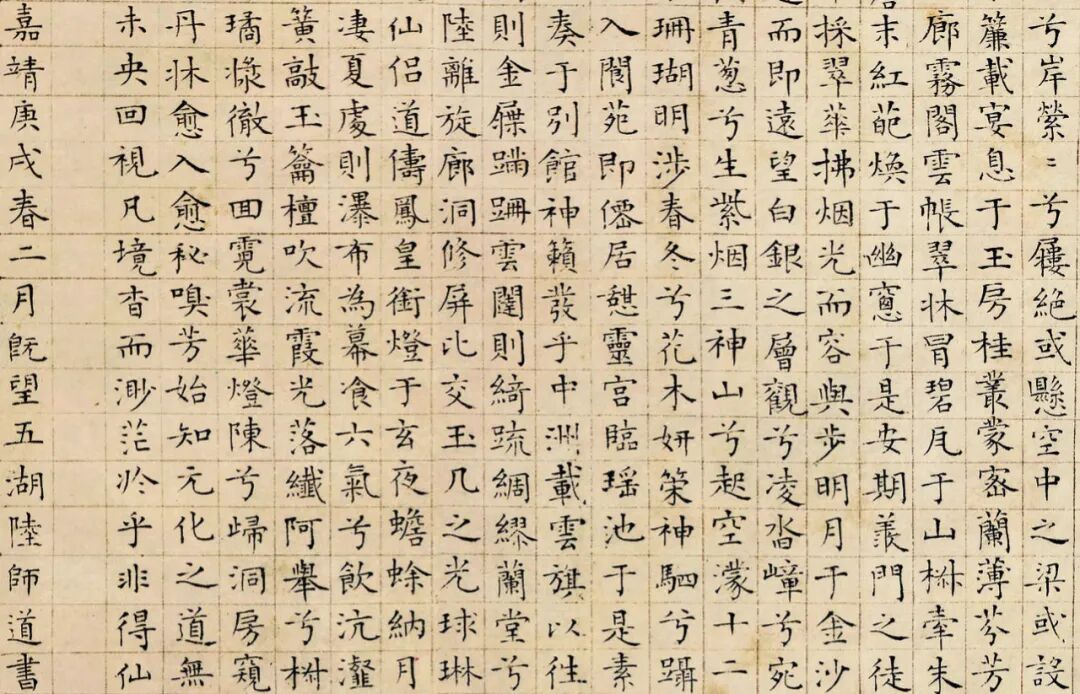 兮岸縈〻兮屨絶或懸空中之梁或設
簾載宴息于玉房桂叢蒙密蘭薄芬芳
廊霧閣雲帳翠牀冒碧瓦于山椒牽朱
末紅葩煥于幽窻于是安期羨門之徒
採翠華拂烟光而容與步明月于金沙
而即遠望白銀之層觀兮凌沓嶂兮宛
青葱兮生紫烟三神山兮起空濛十二
珊瑚明涉春冬兮花木妍策神駟兮躡
入閬苑即僊居憇靈宮臨瑶池于是素
奏于別館神籟發乎中洲載雲旗以徃
則金屧蹣跚雲闥則綺疏綢繆蘭堂兮
陸離旋廊洞修屏比交玉几之光球琳
仙侣道儔鳳皇銜燈于玄夜蟾蜍納月
凄夏處則瀑布為幕食六氣兮飲沆瀣
簧敲玉籥檀吹流霞光落纖阿舉兮椒
璚漿徹兮回霓裳華燈陳兮歸洞房窺
丹牀愈入愈秘嗅芳始知元化之道無
未央回視凡境杳而渺茫於乎非得仙
嘉靖庚戌春二月既望五湖陸師道書